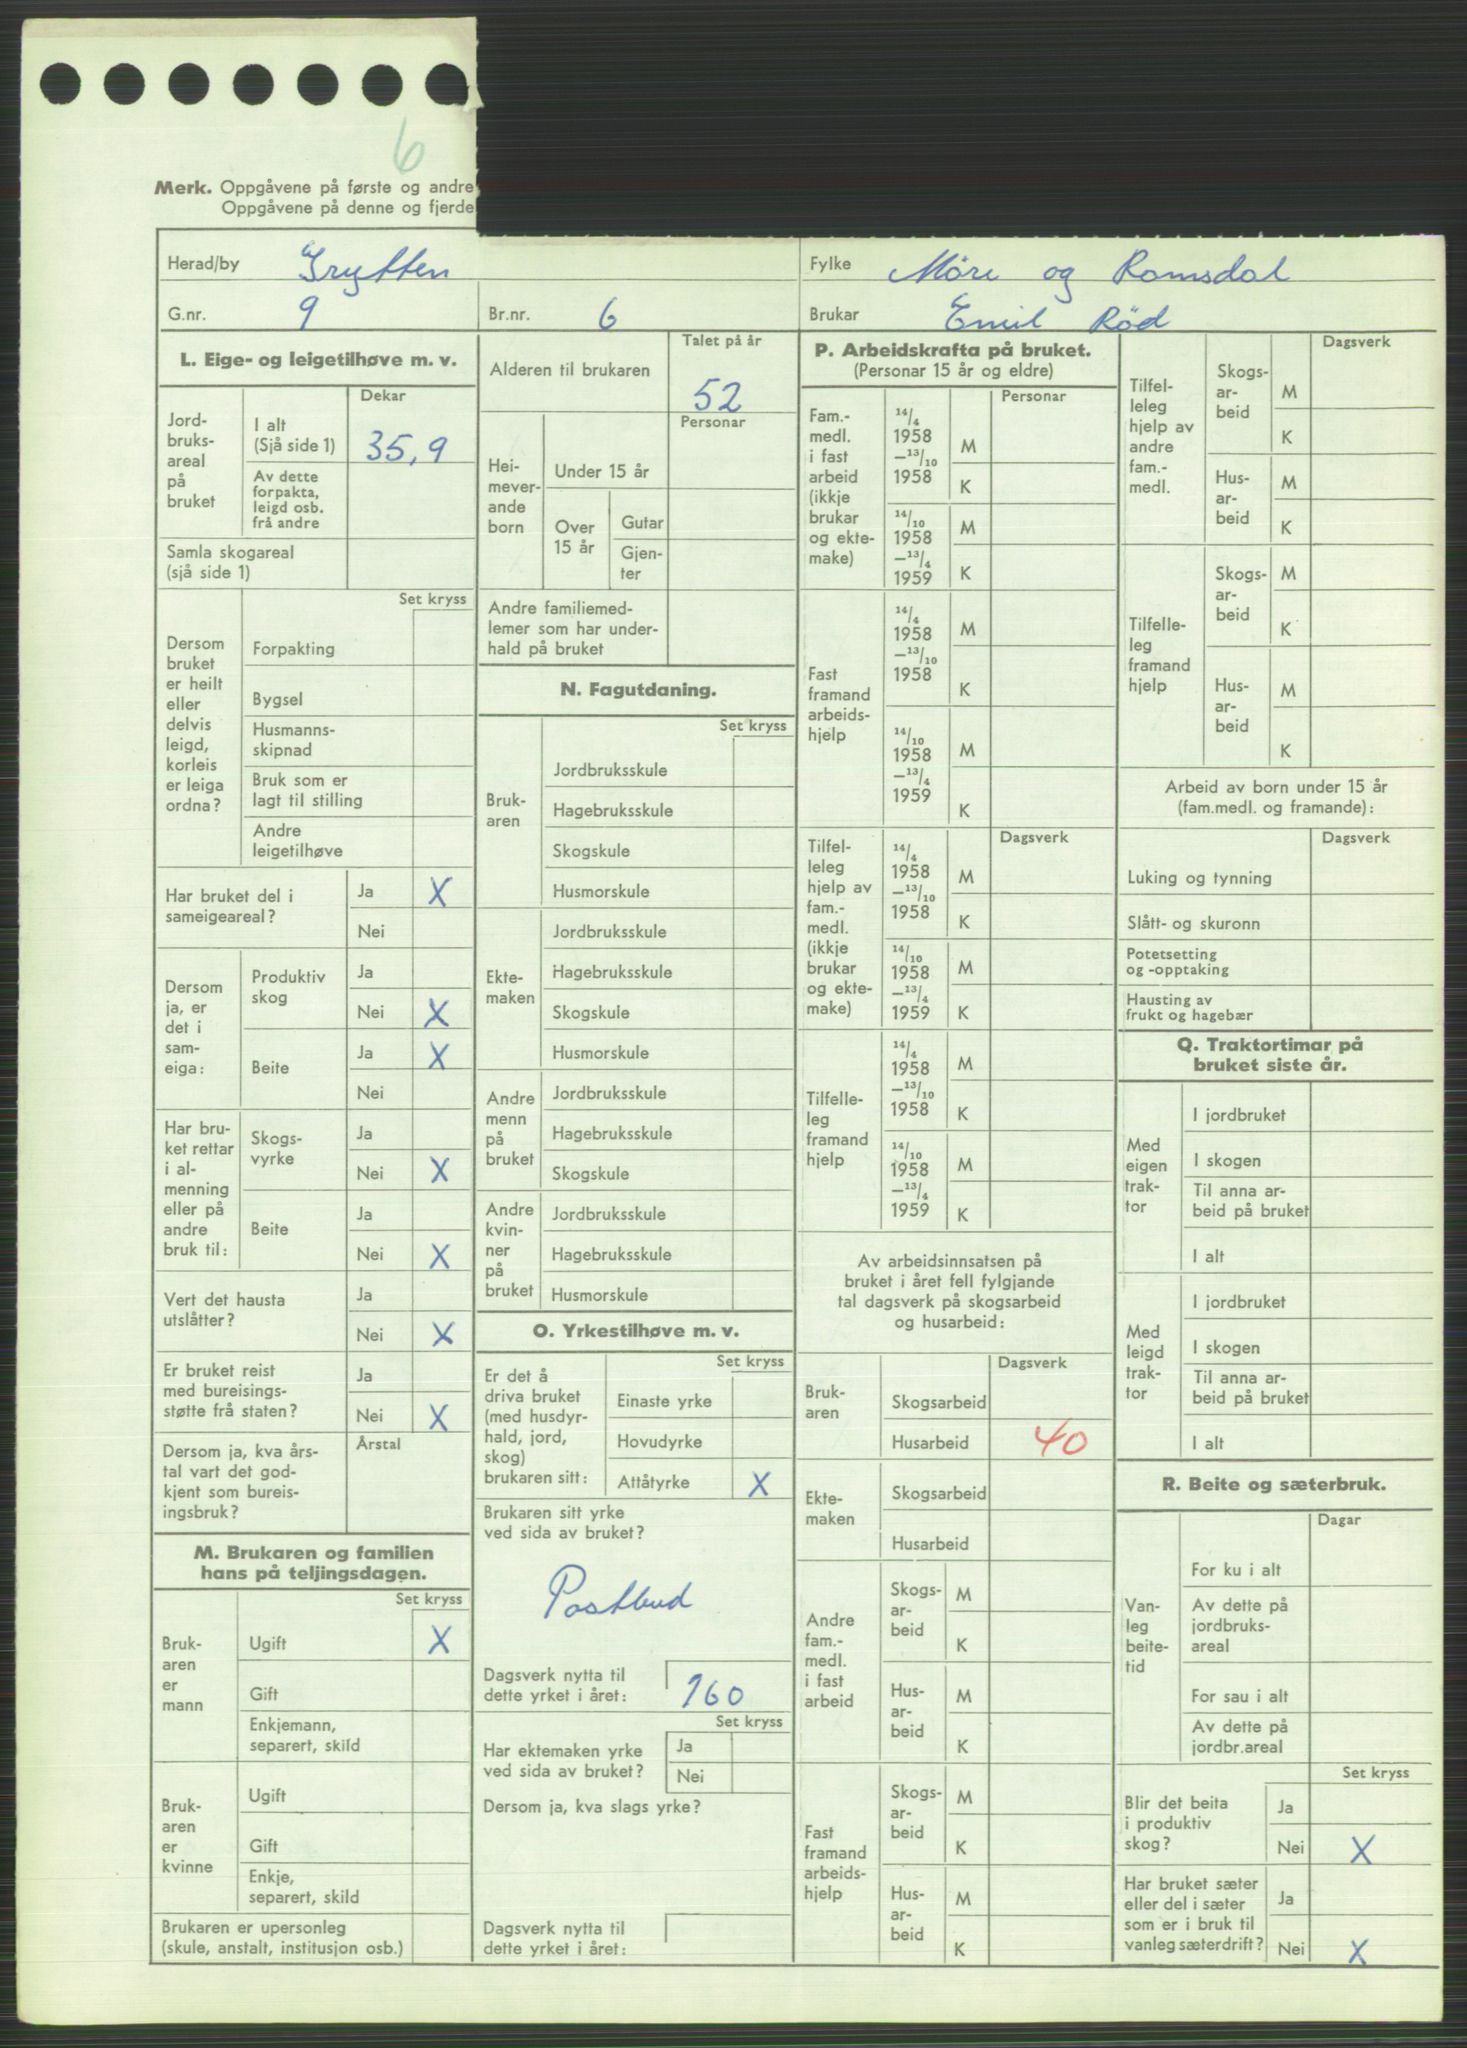 6
Merk. Oppgåvene på første og andre
Oppgåvene på denne og fjerde
Herad/by Grytten
Fylke Möre og Romsdal
G.nr. 9
Br.nr. 6
Brukar Emil Röd
L. Eige- og leigetilhøve m. v.
Jord-
bruks-
areal
på
bruket
Dekar
I alt
(Sjå side 1) 35,9
Av dette
forpakta,
leigd osb.
frå andre
Samla skogareal
(sjå side 1)
Set kryss
Dersom
bruket
er heilt
eller
delvis
leigd,
korleis
er leiga
ordna?
Forpakting
Bygsel
Husmanns-
skipnad
Bruk som er
lagt til stilling
Andre
leigetilhøve
Har bruket del i
sameigeareal?
Ja X
Nei
Dersom
ja, er
det i
sam-
eiga:
Produktiv
skog
Ja
Nei X
Beite
Ja X
Nei
Har bru-
ket rettar
i al-
menning
eller på
andre
bruk til:
Skogs-
vyrke
Ja
Nei X
Beite
Ja
Nei X
Vert det hausta
utslåtter?
Ja
Nei X
Er bruket reist
med bureisings-
støtte frå staten?
Ja
Nei X
Dersom ja, kva års-
tal vart det god-
kjent som bureis-
ingsbruk?
Årstal
M. Brukaren og familien
hans på teljingsdagen.
Set kryss
Bruk-
aren
er
mann
Ugift X
Gift
Enkjemann,
separert, skild
Bruk-
aren
er
kvinne
Ugift
Gift
Enkje,
separert, skild
Brukaren er upersonleg
(skule, anstalt, institusjon osb.)
Talet på år
Alderen til brukaren 52
Personar
Hei-
mever-
ande
born
Under 15 år
Over
15 år
Gutar
Gjen-
ter
Andre familiemed-
lemer som har under-
hald på bruket
N. Fagutdaning.
Set kryss
Bruk-
aren
Jordbruksskule
Hagebruksskule
Skogskule
Husmorskule
Ekte-
maken
Jordbruksskule
Hagebruksskule
Skogskule
Husmorskule
Andre
menn
på
bruket
Jordbruksskule
Hagebruksskule
Skogskule
Andre
kvin-
ner
på
bruket
Jordbruksskule
Hagebruksskule
Husmorskule
O. Yrkestilhøve m. v.
Set kryss
Er det å
driva bruket
(med husdyr-
hald, jord,
skog)
brukaren sitt:
Einaste yrke
Hovudyrke
Attåtyrke X
Brukaren sitt yrke
ved sida av bruket?
Postbud
Dagsverk nytta til
dette yrket i året: 160
Set kryss
Har ektemaken yrke
ved sida av bruket?
Ja
Nei
Dersom ja, kva slags yrke?
Dagsverk nytta til
dette yrket i året:
P. Arbeidskrafta på bruket.
(Personar 15 år og eldre)
Personar
Fam.-
medl.
i fast
arbeid
(ikkje
brukar
og ekte-
make)
14/4
1958
—13/10
1958
M
K
14/10
1958
—13/4
1959
M
K
Fast
framand
arbeids-
hjelp
14/4
1958
—13/10
1958
M
K
14/10
1958
—13/4
1959
M
K
Dagsverk
Tilfel-
leleg
hjelp av
fam.-
medl.
(ikkje
brukar
og ekte-
make)
14/4
1958
—13/10
1958
M
K
14/10
1958
—13/4
1959
M
K
Tilfelle-
leg
framand
hjelp
14/4
1958
—13/10
1958
M
K
14/10
1958
—13/4
1959
M
K
Av arbeidsinnsatsen på
bruket i året fell fylgjande
tal dagsverk på skogsarbeid
og husarbeid:
Dagsverk
Bruk-
aren
Skogsarbeid
Husarbeid 40
Ekte-
maken
Skogsarbeid
Husarbeid
Andre
fam.-
medl.
i fast
arbeid
Skogs-
ar-
beid
M
K
Hus-
ar-
beid
M
K
Fast
framand
arbeids-
hjelp
Skogs-
ar-
beid
M
K
Hus-
ar-
beid
M
K
Dagsverk
Tilfel-
leleg
hjelp av
andre
fam.-
medl.
Skogs-
ar-
beid
M
K
Hus-
ar-
beid
M
K
Tilfelle-
leg
framand
hjelp
Skogs-
ar-
beid
M
K
Hus-
ar-
beid
M
K
Arbeid av born under 15 år
(fam.medl. og framande):
Dagsverk
Luking og tynning
Slått- og skuronn
Potetsetting
og -opptaking
Hausting av
frukt og hagebær
Q. Traktortimar på
bruket siste år.
Med
eigen
trak-
tor
I jordbruket
I skogen
Til anna ar-
beid på bruket
I alt
Med
leigd
trak-
tor
I jordbruket
I skogen
Til anna ar-
beid på bruket
I alt
R. Beite og sæterbruk.
Dagar
Van-
leg
beite-
tid
For ku i alt
Av dette på
jordbruks-
areal
For sau i alt
Av dette på
jordbr.areal
Set kryss
Blir det beita
i produktiv
skog?
Ja
Nei X
Har bruket sæter
eller del i sæter
som er i bruk til
vanleg sæterdrift?
Ja
Nei X